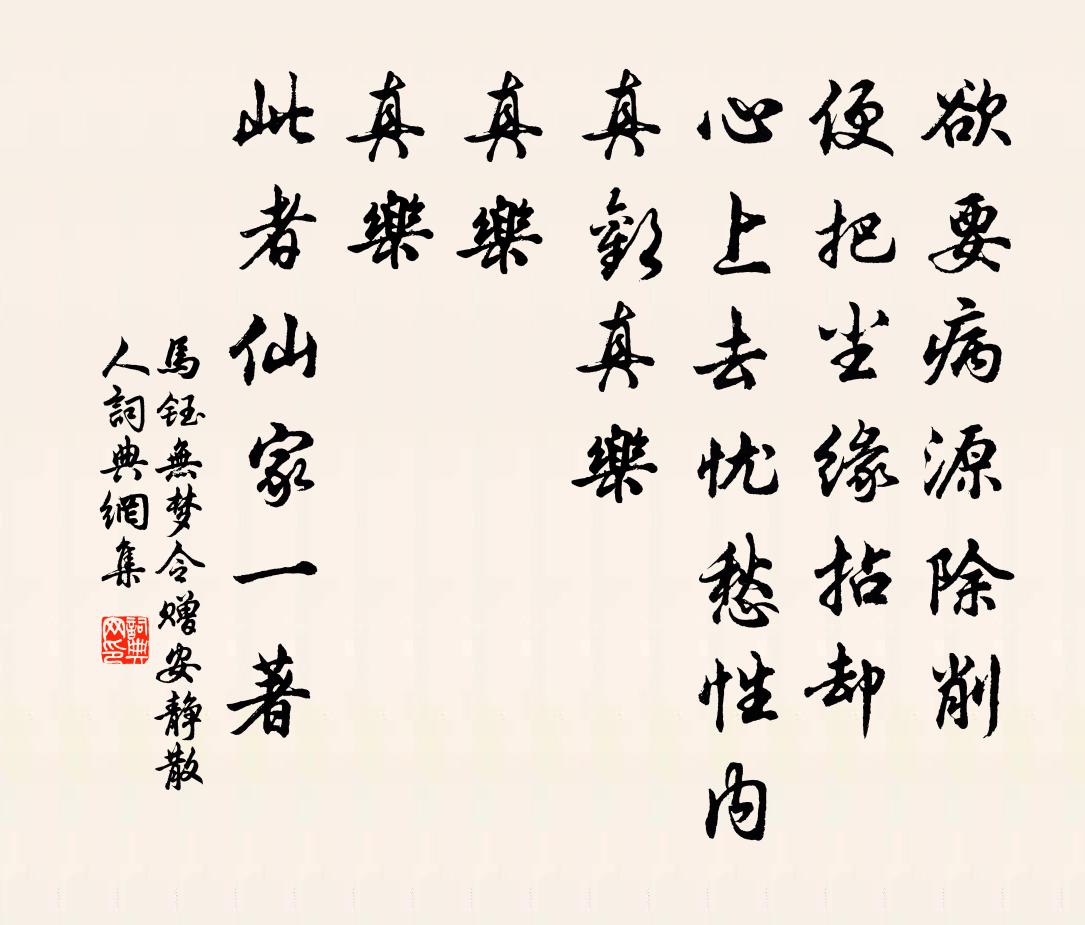 欲要病源除削
便把尘缘拈却
心上去忧愁性内
真歡真樂
真樂
真樂
此者仙家一著
馬钰無梦令赠安静散
人詞典網集
詞典
网印